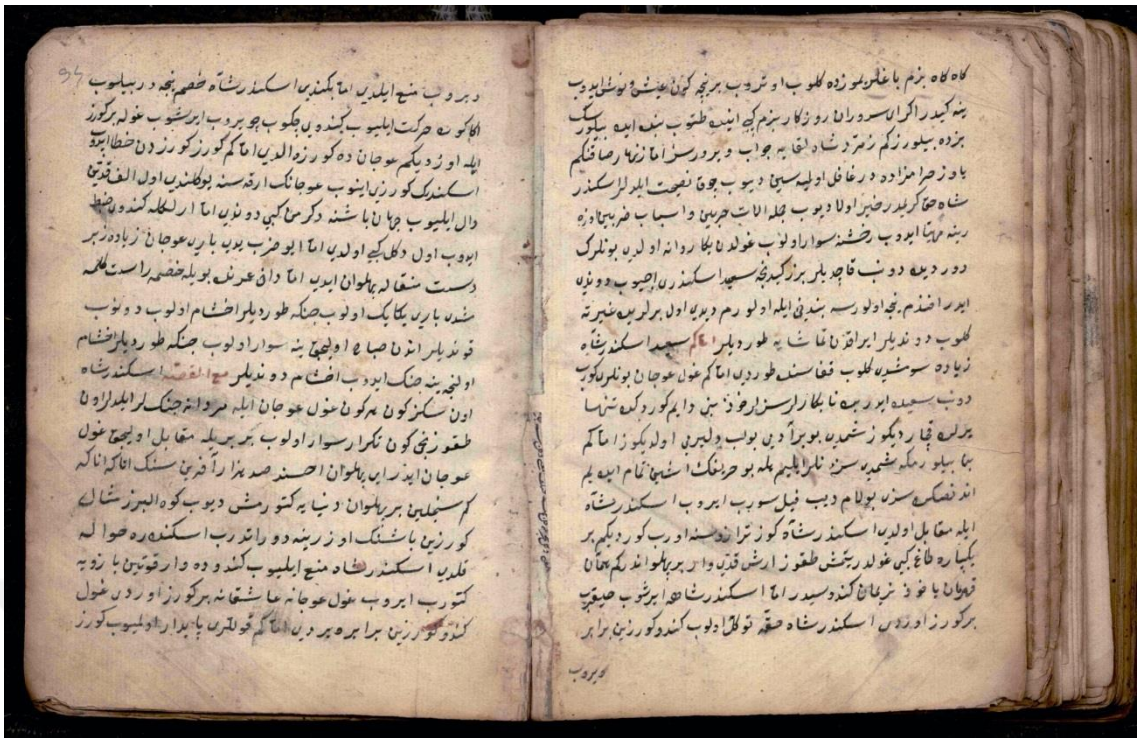 كاه كاه بزم باغلريموزده كلوب اوتروب برنجه كون عيش ونوش ايدوب
ينه كيدر اكر اى سروران روزكار بزم كبى ايتك طتوب بنك ايده بيلورسك
بزده بيلورز كم زمرد شاه لقايه جواب ويرورسز اما زنهار صاقنكم
ياوز حرامزاده در غافل اولميه سين ديوب چوق نصيحت ايلديلر اسكندر
شاه حق كريمدر خير اولا ديوب جمله الات حربين واسباب ضربين اوزه
رينه مهيا ايدوب رخشنه سوار اولوب غولدن يكا روانه اولدى بونلرك
دوردين دونب قاچديلر بز كيدنجه سعيد اسكندرى اچيوب دوندى
ايدر افندم نجه اولورسه بندخى ايله اولورم ديدى اول برلريده غيرته
كلوب دونديلر ايراقدن تماشايه طورديلر اما كم سعيد اسكندر شاه
زياده سومشدى كلوب قفاسنده طوردى اما كم غول عوجان بونلرى كورب
دونب سعيده ايدر بره نابكارلر سزلر خوذ بنى دايم كوردكده تنها
يرلره قچاردیكوز شمدى بويرآدين بولب دلير مى اولديكوز اما كم
بن بيلورمكه شمدى سزه نلر ايليم هله بو حريفك اشين تمام ايده يم
اندنصكره سزى بولام ديب فيل سورب ايروب اسكندر شاه
ايله مقابل اولدى اسكندر شاه كوز ترازوسنه اورب كورديكم بر
يكپاره طاغ كبى غولدر يتمش طقوز ارش قدى وار بر پهلواندركم همان
قهرمان يا خوذ نريمان كندوسيدر اما اسكندر شاهه ايرشوب صيقرب
بر كورز اوردى اسكندر شاه حقه توكل اولوب كندو كورزين برابر
ويروب
94
ويروب منع ايلدى اما بكندى اسكندر شاه خصم نجه در بيلوب
اكا كوره حركت ايليوب كندوى چكوب چويروب ايرشوب غوله بر كورز
ايله اوردیكم عوجان ده كورزه الدى اما كم كورز كورزدن خطا ايدوب
اسكندرك كورزى اينوب عوجانك ارقه سنه بوكلندى اول الف قدين
دال ايليوب جهان باشنه دكرمن كبى دوندى اما ار لكله كندوى ضبط
ايدوب اول دكل كبى اولدى اما ايو ضرب يدى يارى عوجان زياده زبر
دست منقاله پهلوان ايدى اما دخى عمرنده بويله خصمه راست كلمه
مشدى يارى يكايك اولوب جنكه طورديلر اخشام اولوب دونوب
قونديلر اندن صباح اوليجق ينه سوار اولوب جنكه طورديلر اخشام
اولنجه ينه جنك ايدوب اخشام دونديلر مع القصه اسكندر شاه
اون سكز كون هر كون غول عوجان ايله مردانه جنكلر ايلديلر اون
طقوزنجى كون تكرار سوار اولوب بربريله مقابل اوليجق غول
عوجان ايدر اى پهلوان احسند صد هزار آفرين سنك اتاكه اناكه
كم سنجلين بر پهلوان دنيايه كتورمش ديوب كوه البرز مثالى
كورزين باشنك اوزرينه دوراندرب اسكندره حواله
قلدى اسكندر شاه منع ايليوب كندوده وار قوتين بازويه
كتورب ايروب غول عوجانه عاشقانه بر كورز اوردى غول
كندو كورزين برابره ويردى اما كم قوللرى پايدار اولميوب كورز